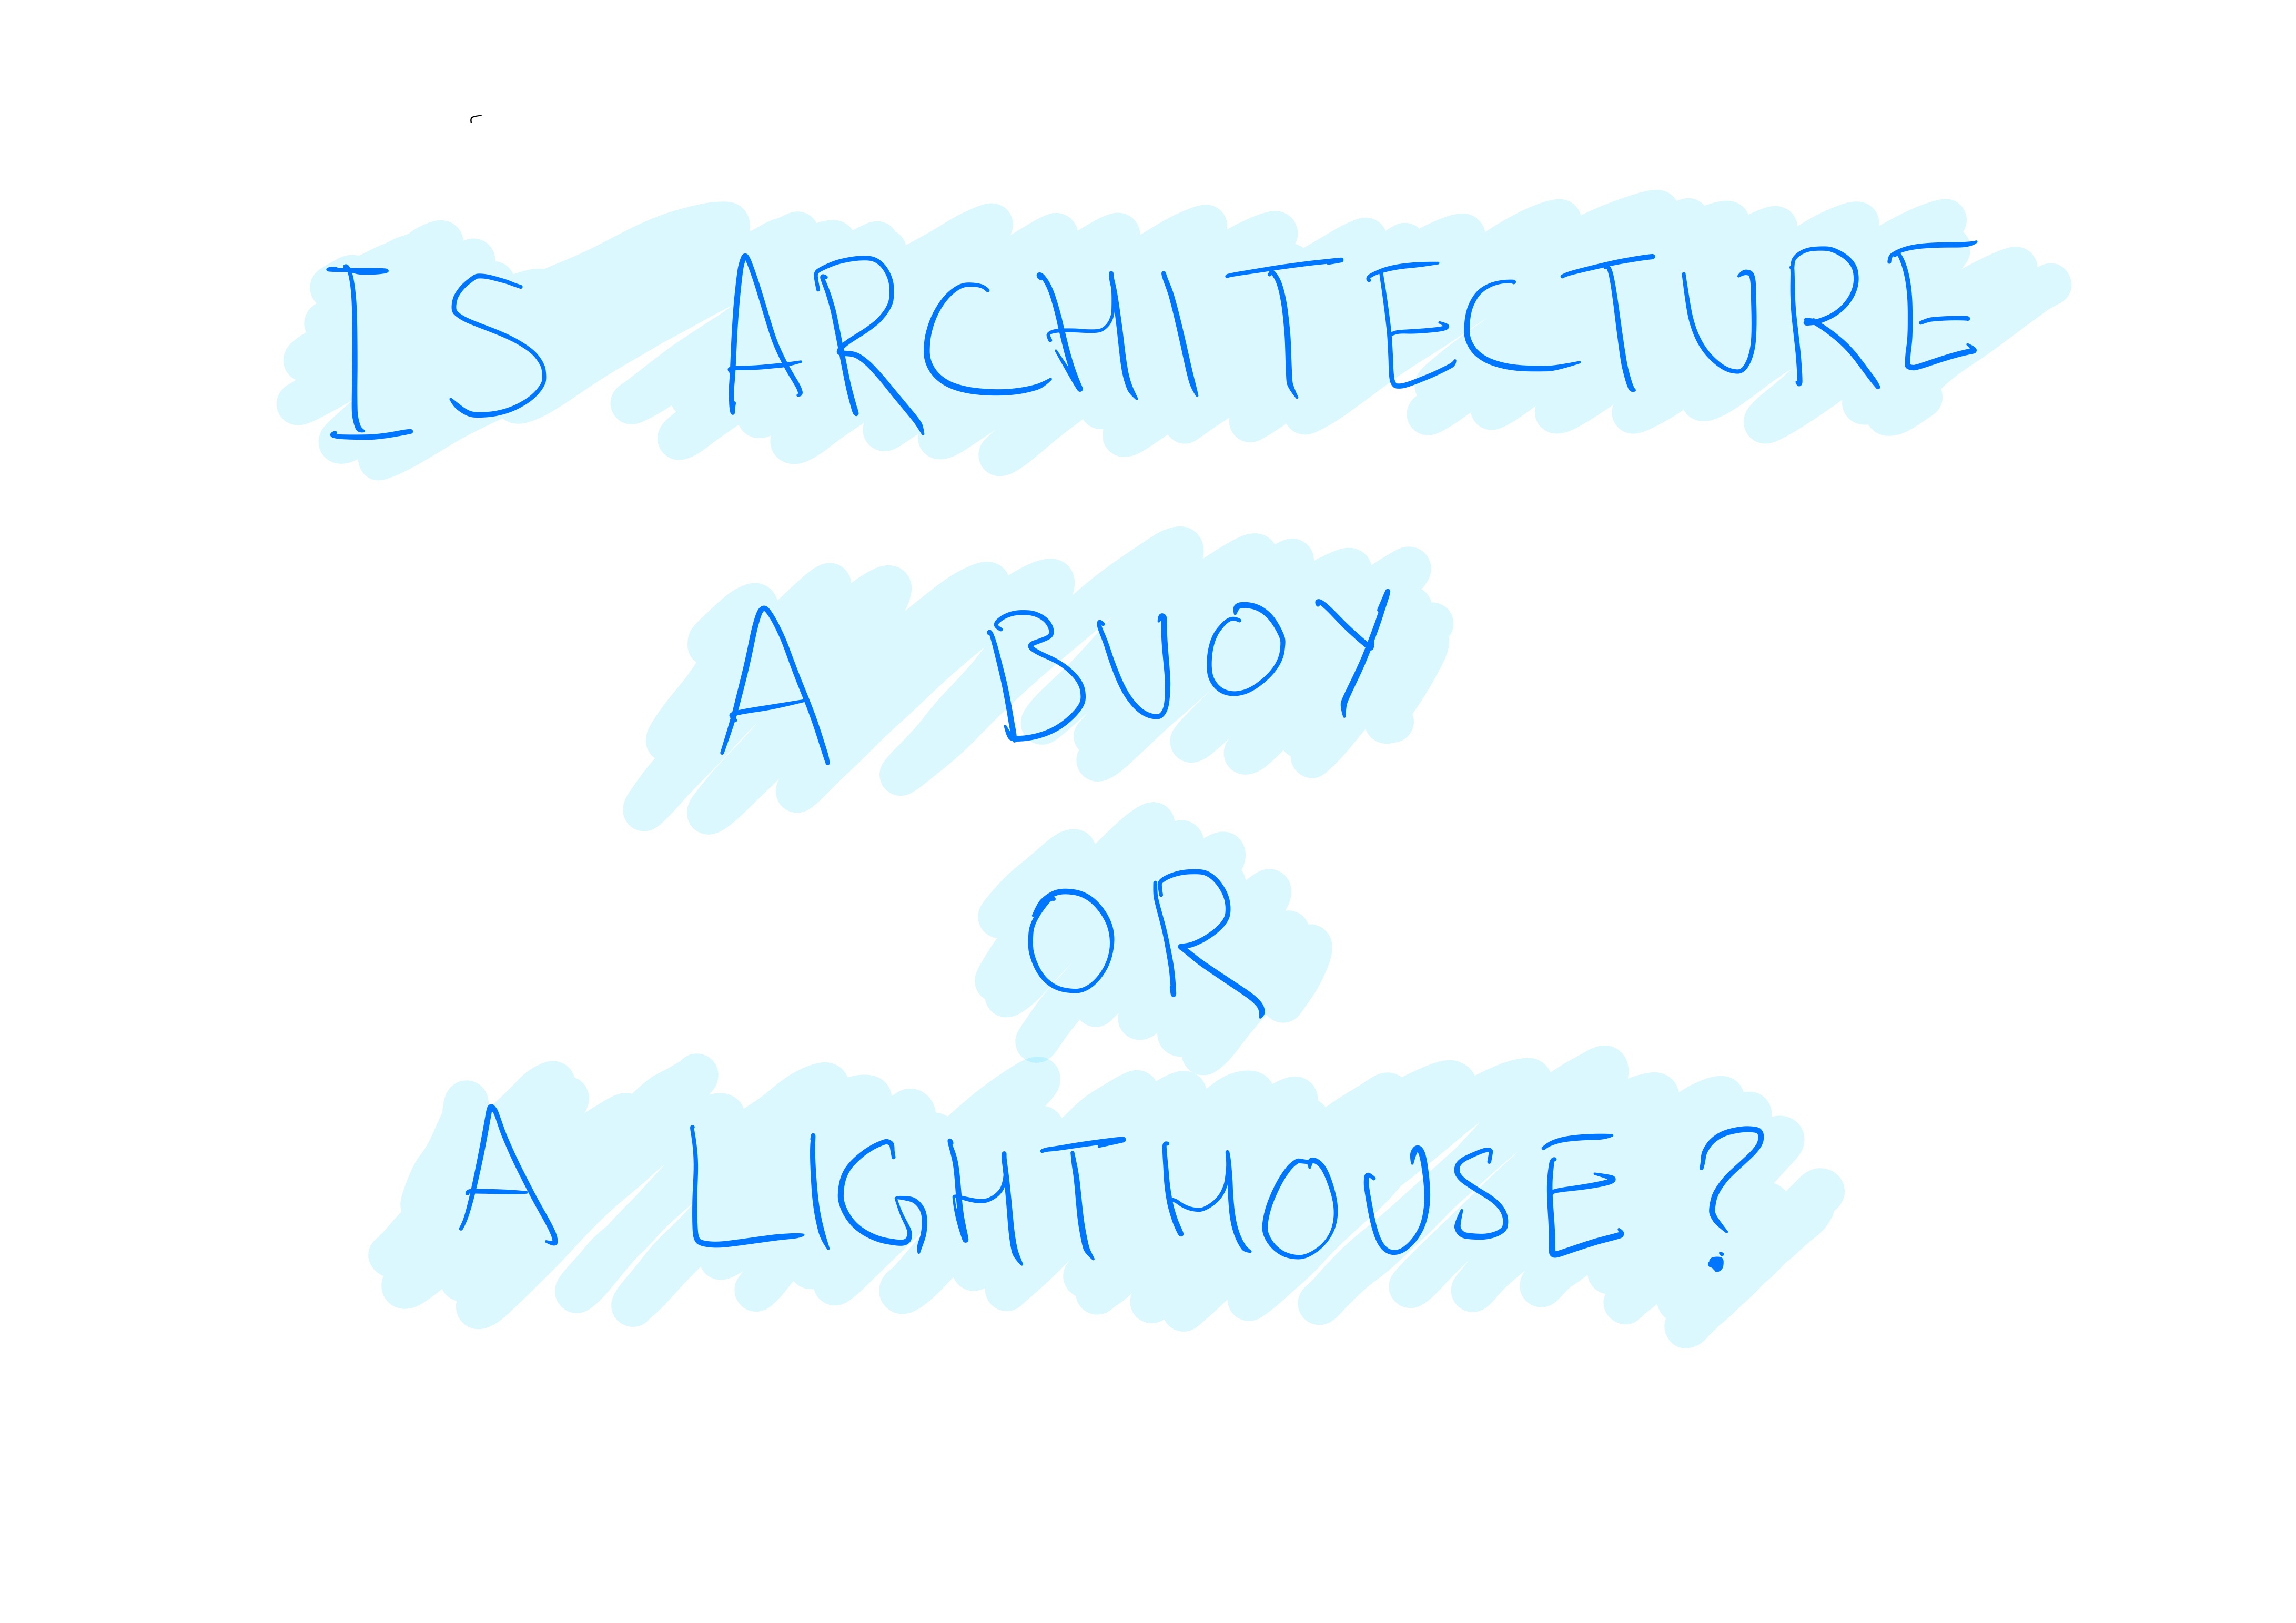 IS ARCHITECTURE
A BUOY
OR
A LIGHTHOUSE ?